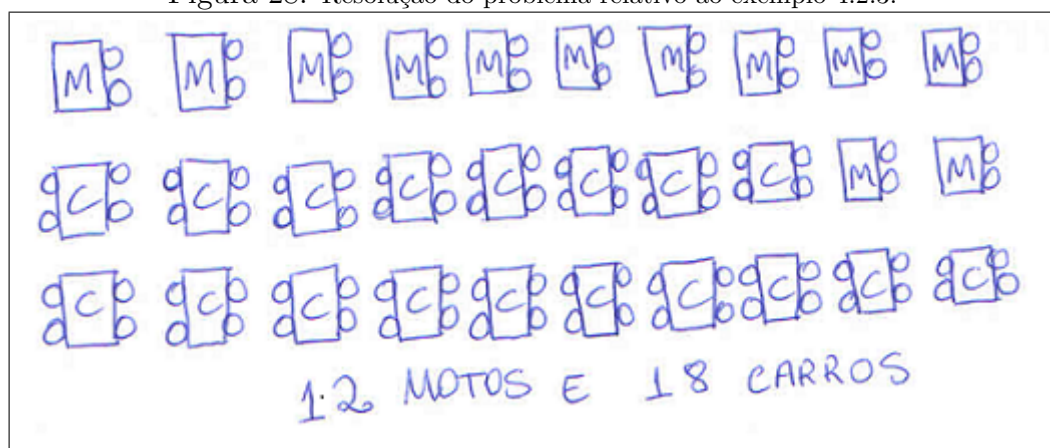 Figura 28: Resolução do problema relativo ao exemplo 4.2.3.
M M M M M M M M M M
C C C C C C C C M M
C C C C C C C C C C
12 MOTOS E 18 CARROS